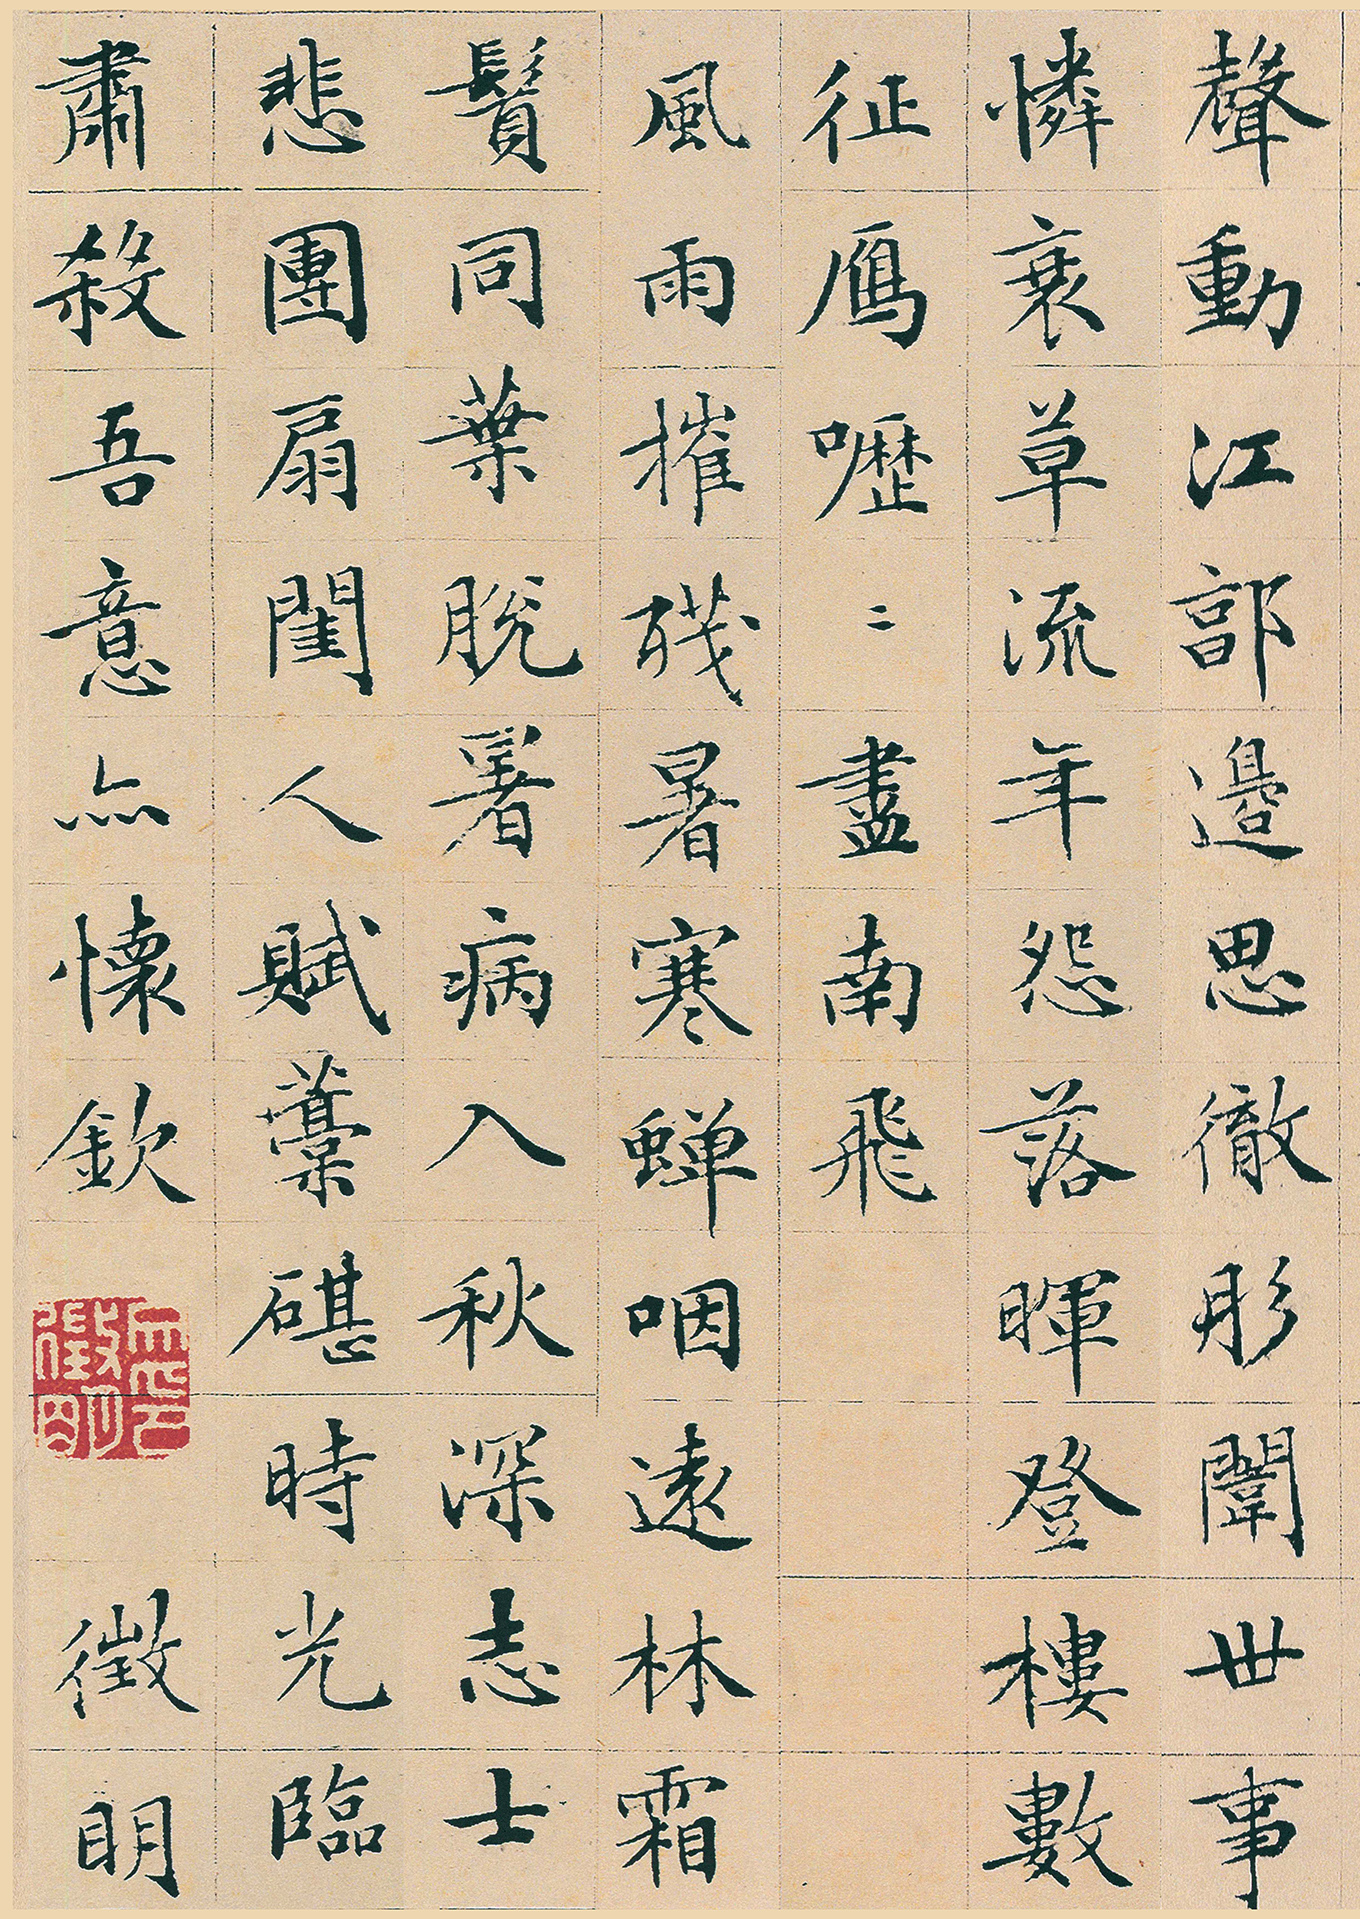 聲動江郚邊思徹彤闈世事
憐衰草流年怨落暉登樓數
征鴈嚦二盡南飛
風雨摧殘暑寒蟬咽遠林霜
鬢同葉脫暑病入秋深志士
悲團扇閨人賦藁碪時光臨
肅殺吾意亦懷欽
徵明